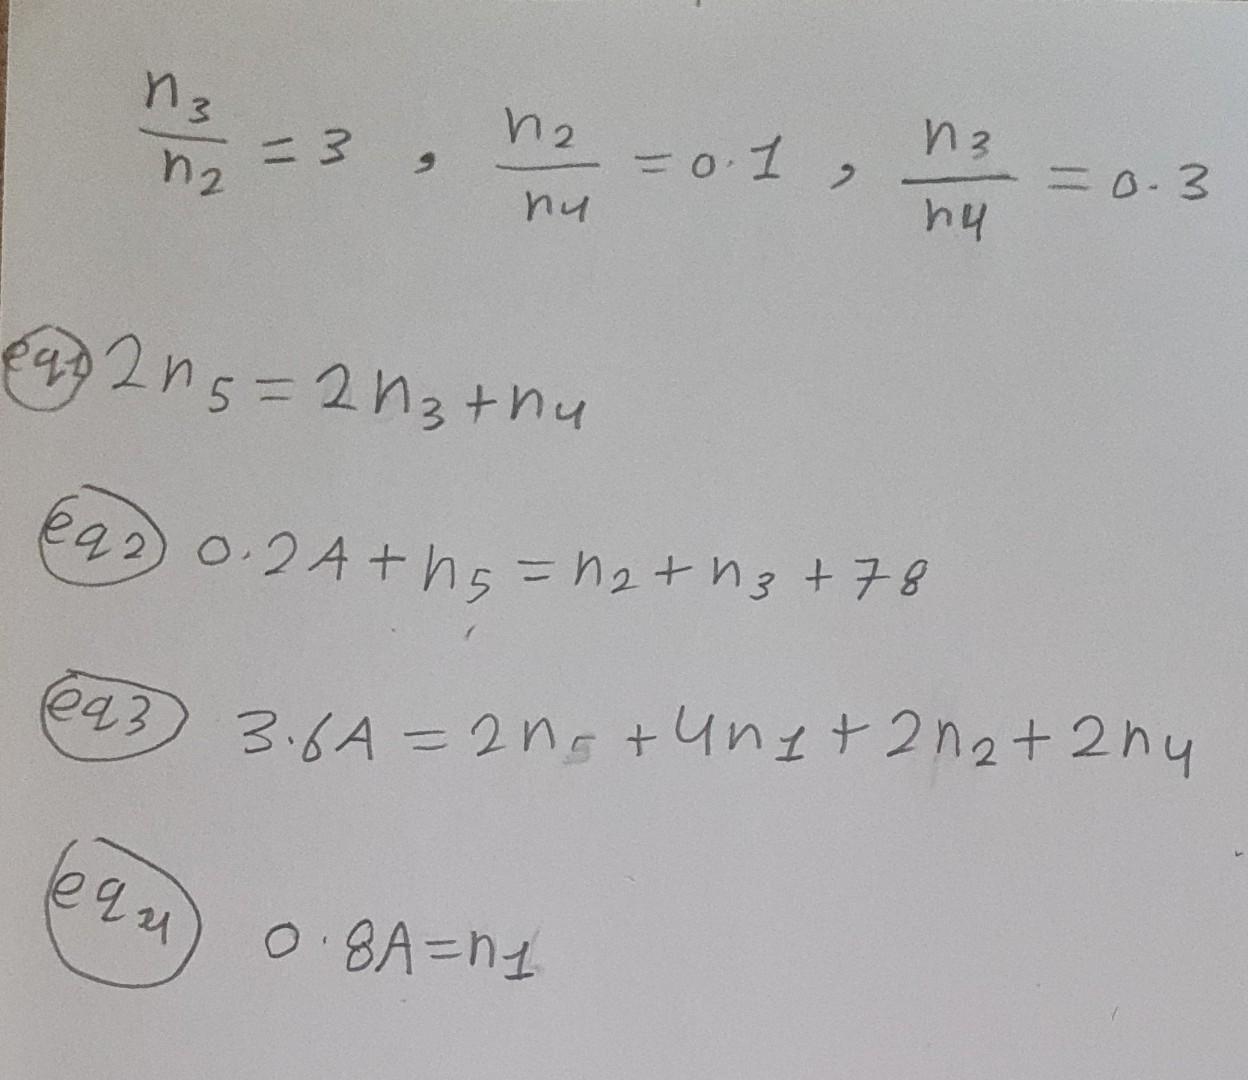 n3/n2 = 3 , n2/n4 = 0.1 , n3/n4 = 0.3
eq1 2n5 = 2n3 + n4
eq2 0.2A + n5 = n2 + n3 + 78
eq3 3.6A = 2n5 + 4n1 + 2n2 + 2n4
eq4 0.8A = n1